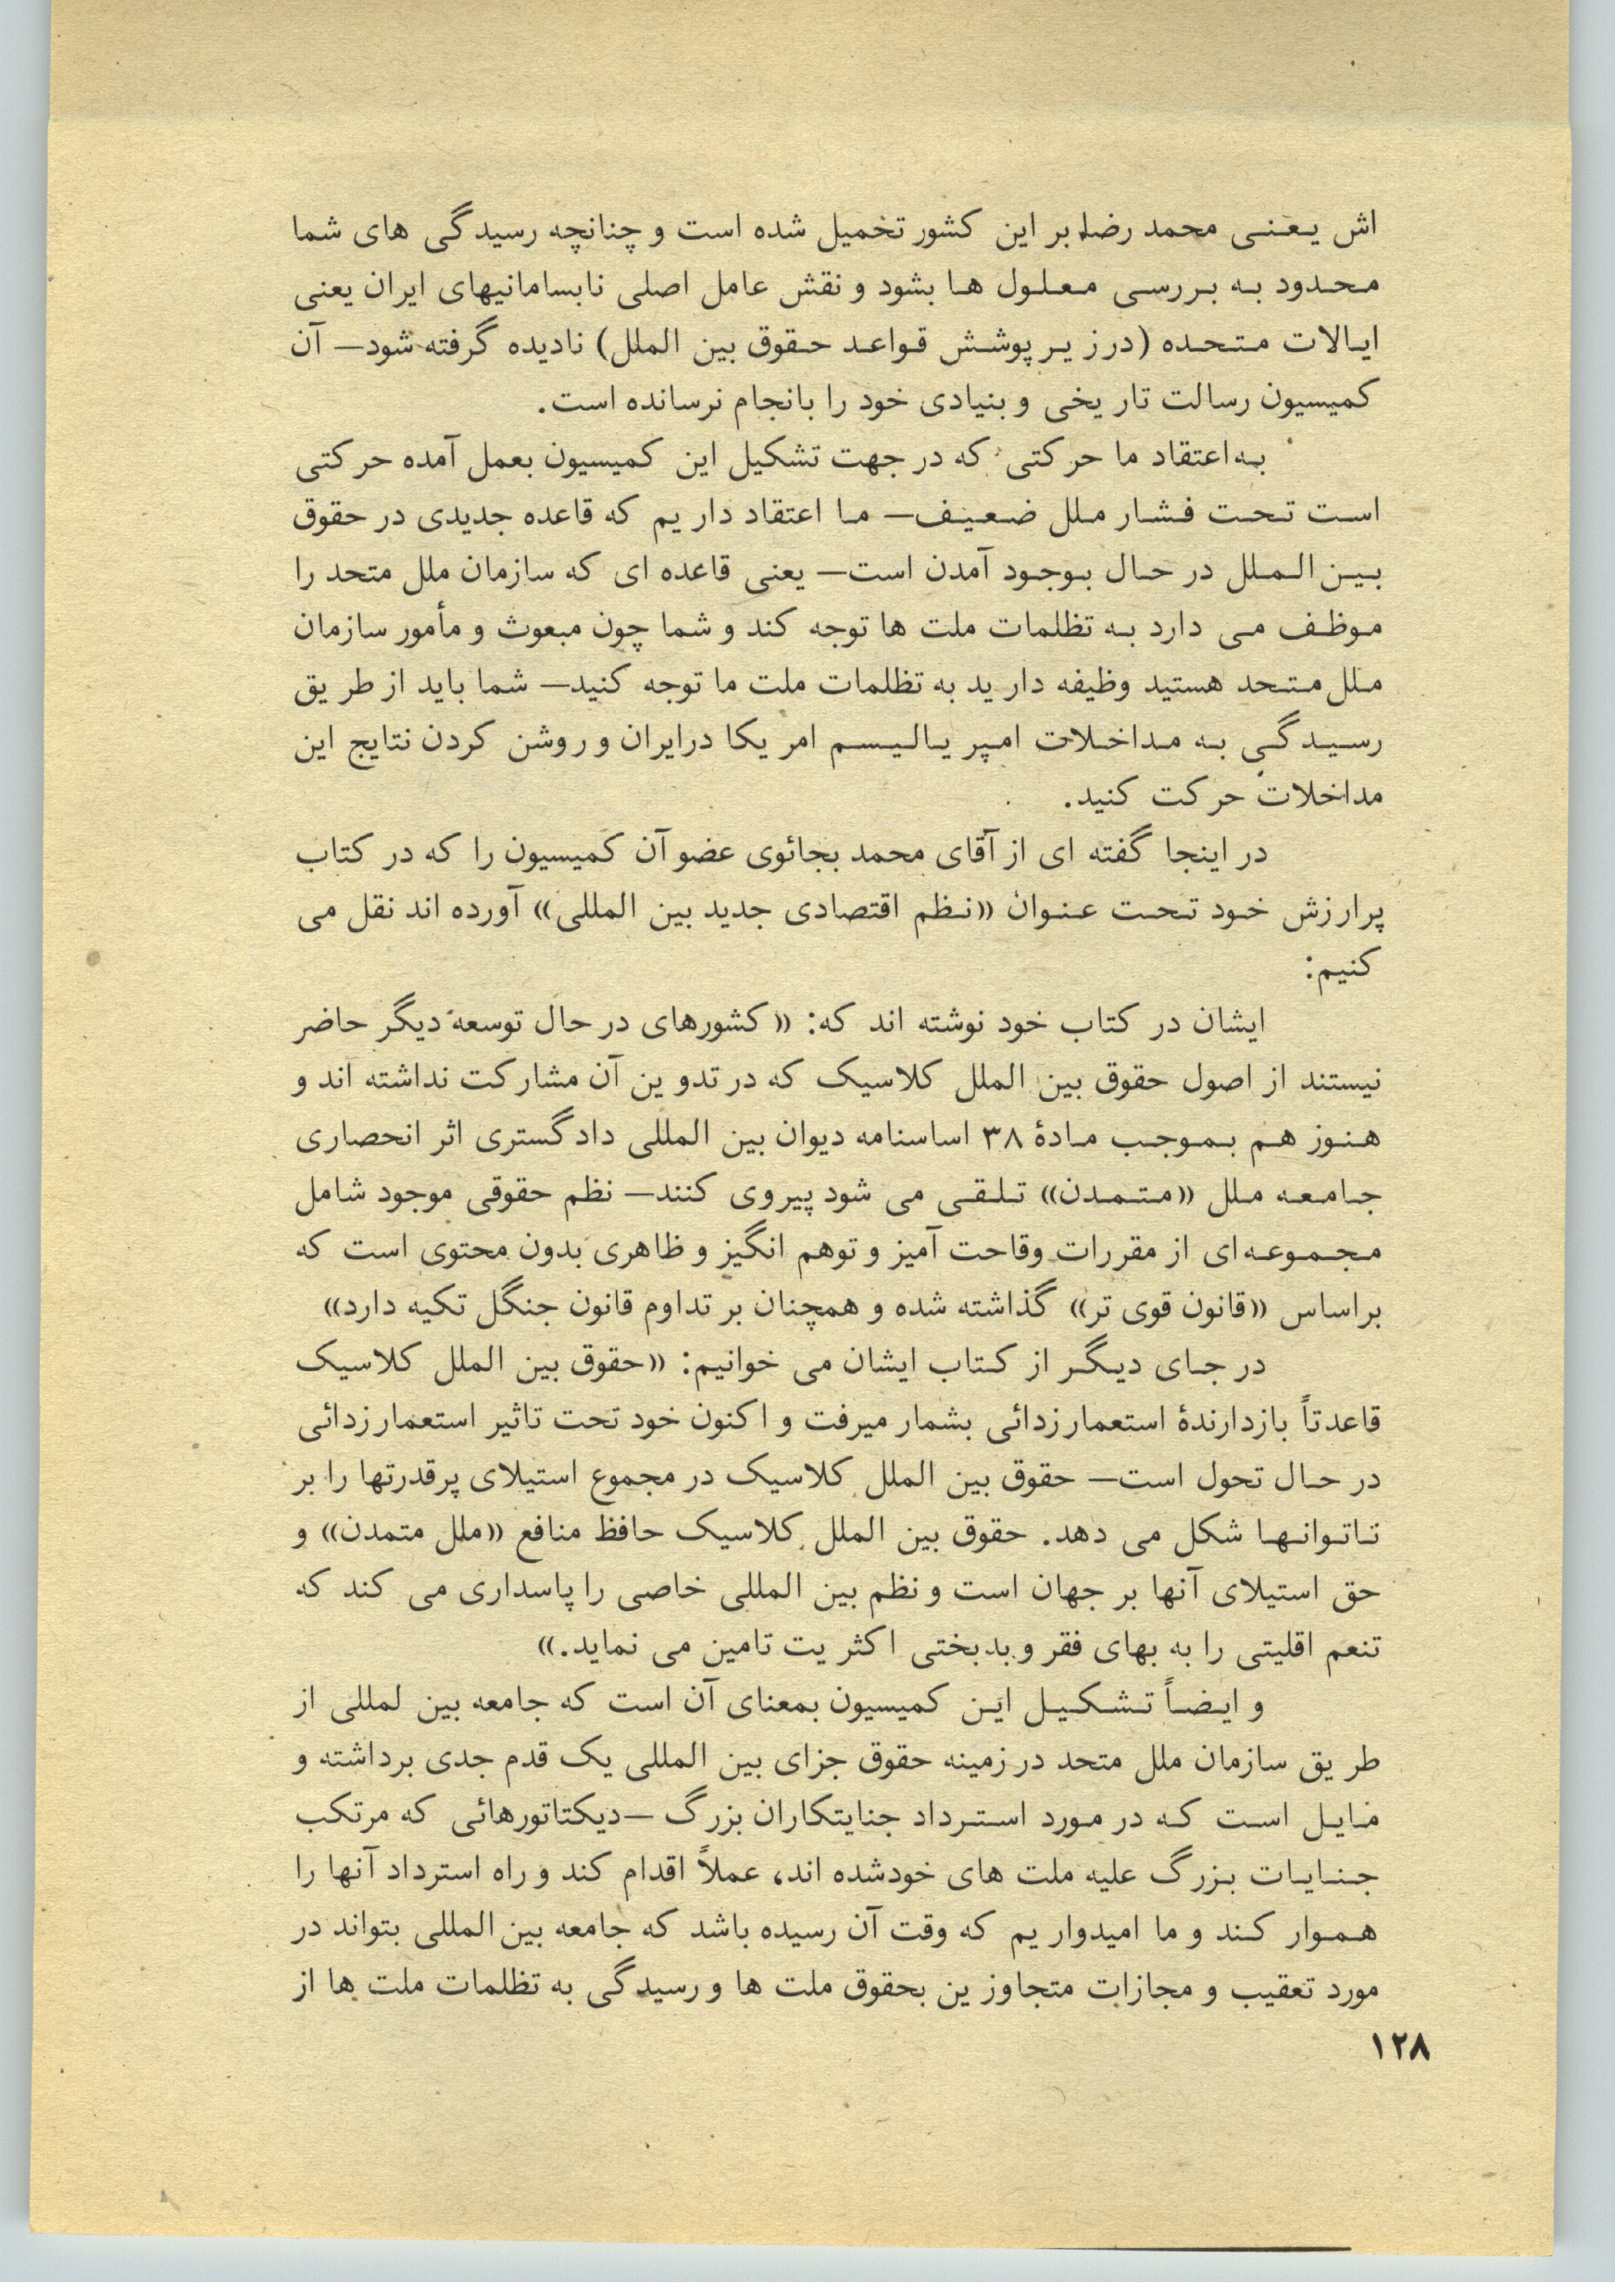 اش یعنی محمد رضا بر این کشور تخمیل شده است و چنانچه رسیدگی های شما
محدود به بررسی معلول ها بشود و نقش عامل اصلی نابسامانیهای ایران یعنی
ایالات متحده (در زیر پوشش قواعد حقوق بین الملل) نادیده گرفته شود— آن
کمیسیون رسالت تاریخی و بنیادی خود را بانجام نرسانده است.
به اعتقاد ما حرکتی که در جهت تشکیل این کمیسیون بعمل آمده حرکتی
است تحت فشار ملل ضعیف— ما اعتقاد داریم که قاعده جدیدی در حقوق
بین الملل در حال بوجود آمدن است— یعنی قاعده ای که سازمان ملل متحد را
موظف می دارد به تظلمات ملت ها توجه کند و شما چون مبعوث و مأمور سازمان
ملل متحد هستید وظیفه دارید به تظلمات ملت ما توجه کنید— شما باید از طریق
رسیدگی به مداخلات امپریالیسم امریکا درایران و روشن کردن نتایج این
مداخلات حرکت کنید.
در اینجا گفته ای از آقای محمد بجائوی عضو آن کمیسیون را که در کتاب
پرارزش خود تحت عنوان «نظم اقتصادی جدید بین المللی» آورده اند نقل می
کنیم:
ایشان در کتاب خود نوشته اند که: «کشورهای در حال توسعه دیگر حاضر
نیستند از اصول حقوق بین الملل کلاسیک که در تدوین آن مشارکت نداشته اند و
هنوز هم بموجب مادۀ ۳۸ اساسنامه دیوان بین المللی دادگستری اثر انحصاری
جامعه ملل «متمدن» تلقی می شود پیروی کنند— نظم حقوقی موجود شامل
مجموعه ای از مقررات وقاحت آمیز و توهم انگیز و ظاهری بدون محتوی است که
براساس «قانون قوی تر» گذاشته شده و همچنان بر تداوم قانون جنگل تکیه دارد»
در جای دیگر از کتاب ایشان می خوانیم: «حقوق بین الملل کلاسیک
قاعدتاً بازدارندۀ استعمارزدائی بشمار میرفت و اکنون خود تحت تاثیر استعمارزدائی
در حال تحول است— حقوق بین الملل کلاسیک در مجموع استیلای پرقدرتها را بر
تاتوانها شکل می دهد. حقوق بین الملل کلاسیک حافظ منافع «ملل متمدن» و
حق استیلای آنها بر جهان است و نظم بین المللی خاصی را پاسداری می کند که
تنعم اقلیتی را به بهای فقر و بدبختی اکثریت تامین می نماید.»
و ایضاً تشکیل این کمیسیون بمعنای آن است که جامعه بین لمللی از
طریق سازمان ملل متحد در زمینه حقوق جزای بین المللی یک قدم جدی برداشته و
مایل است که در مورد استرداد جنایتکاران بزرگ —دیکتاتورهائی که مرتکب
جنایات بزرگ علیه ملت های خودشده اند، عملاً اقدام کند و راه استرداد آنها را
هموار کند و ما امیدواریم که وقت آن رسیده باشد که جامعه بین المللی بتواند در
مورد تعقیب و مجازات متجاوزین بحقوق ملت ها و رسیدگی به تظلمات ملت ها از
۱۲۸